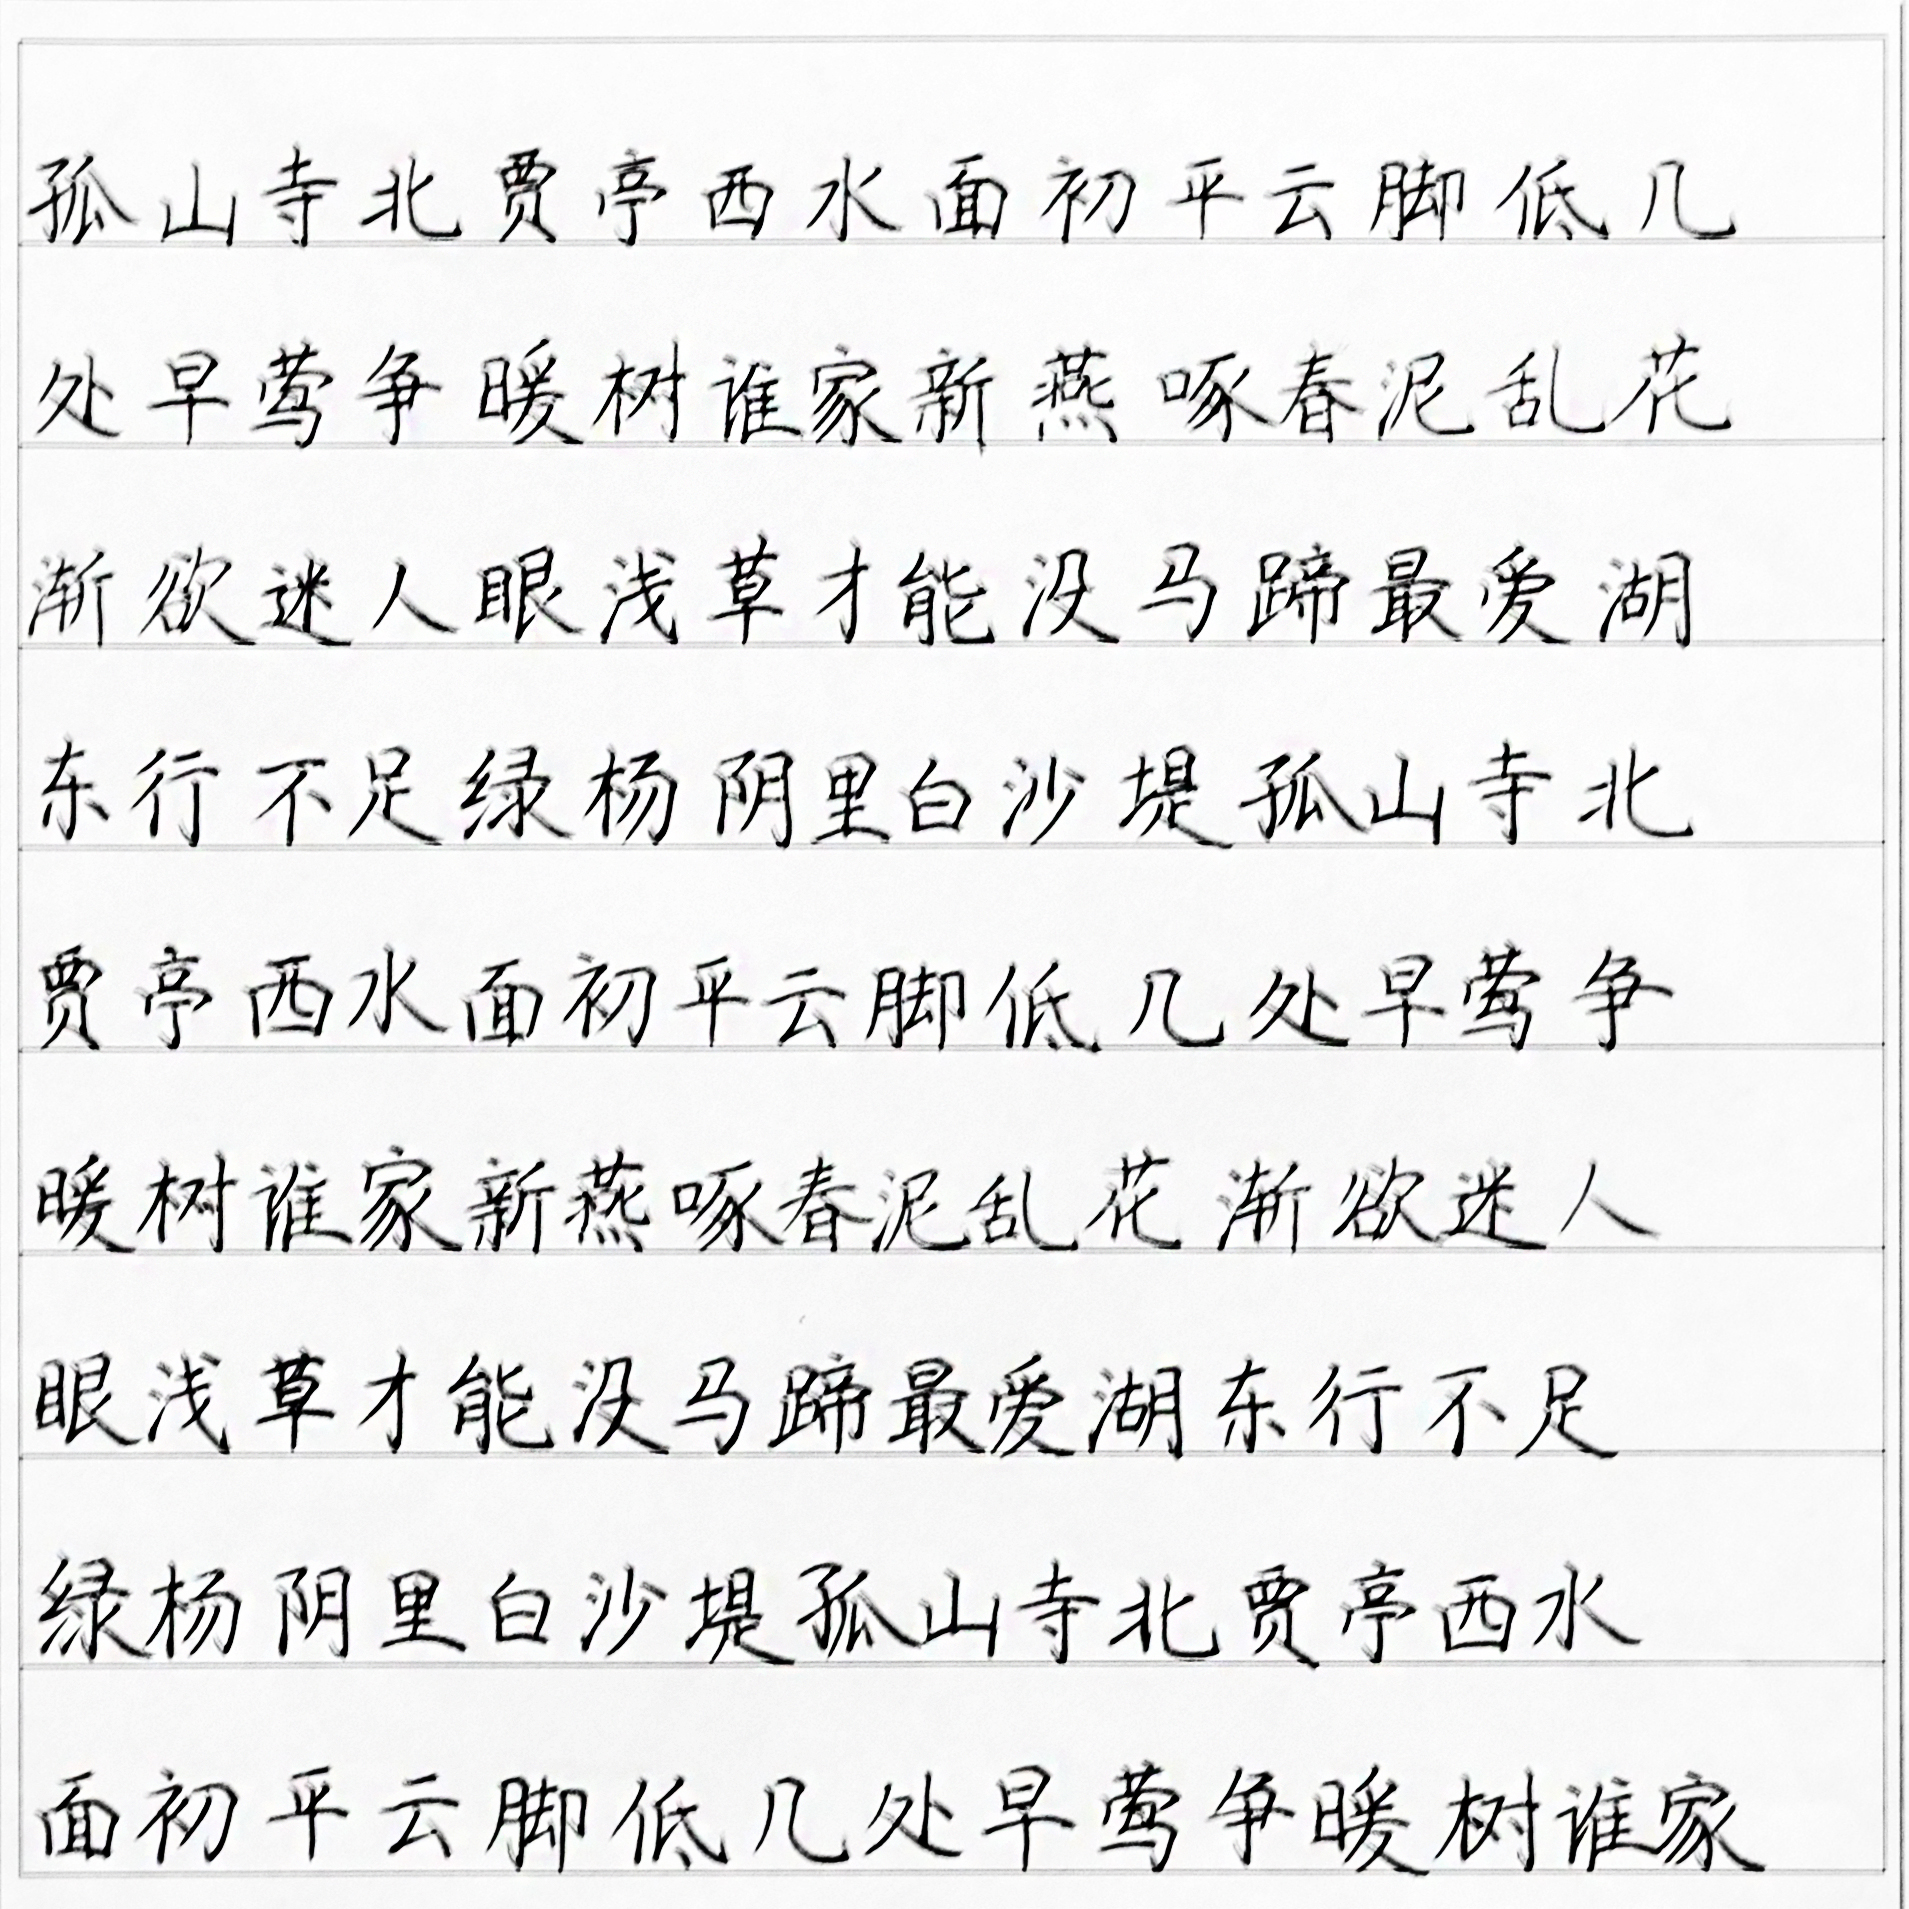 孤山寺北贾亭西水面初平云脚低几
处早莺争暖树谁家新燕啄春泥乱花
渐欲迷人眼浅草才能没马蹄最爱湖
东行不足绿杨阴里白沙堤孤山寺北
贾亭西水面初平云脚低几处早莺争
暖树谁家新燕啄春泥乱花渐欲迷人
眼浅草才能没马蹄最爱湖东行不足
绿杨阴里白沙堤孤山寺北贾亭西水
面初平云脚低几处早莺争暖树谁家